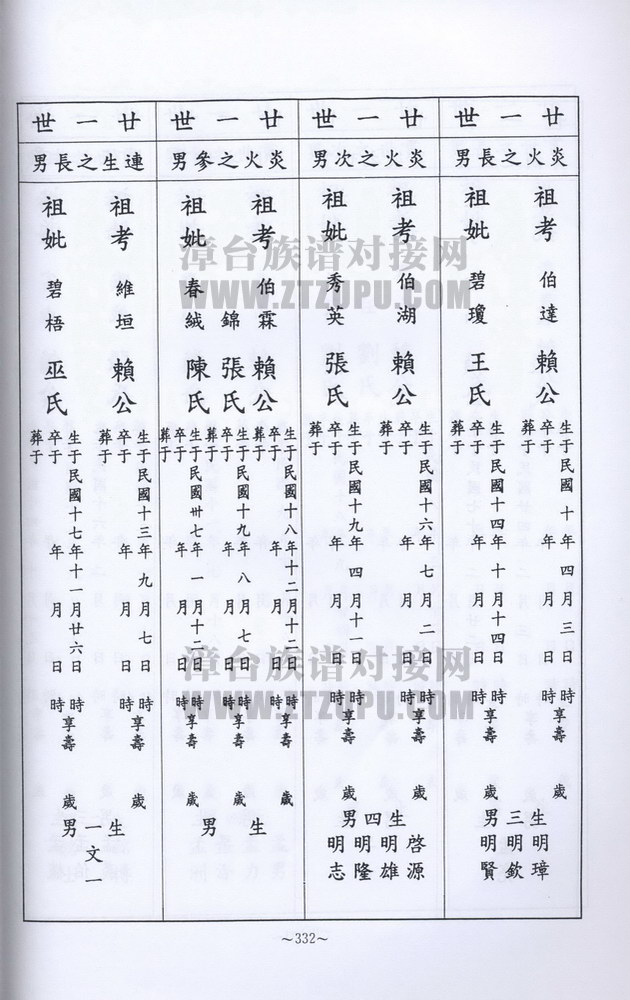 廿一世
炎火之長男
祖考 伯達 賴公
生于民國十年四月三日 時享壽 歲
卒于 年 月 日 時
葬于
祖妣 碧瓊 王氏
生于民國十四年十月十四日 時享壽 歲
卒于 年 月 日 時
葬于
生三男
明璋
明欽
明賢
廿一世
炎火之次男
祖考 伯湖 賴公
生于民國十六年七月二日 時享壽 歲
卒于 年 月 日 時
葬于
祖妣 秀英 張氏
生于民國十九年四月十一日 時享壽 歲
卒于 年 月 日 時
葬于
生四男
啓源
明雄
明隆
明志
廿一世
炎火之參男
祖考 伯霖 賴公
生于民國十八年十二月十二日 時享壽 歲
卒于 年 月 日 時
葬于
錦 張氏
生于民國十九年八月七日 時享壽
卒于 年 月 日 時
葬于
祖妣 春絨 陳氏
生于民國卅七年一月十二日 時享壽 歲
卒于 年 月 日 時
葬于
生 男
廿一世
連生之長男
祖考 維垣 賴公
生于民國十三年九月七日 時享壽 歲
卒于 年 月 日 時
葬于
祖妣 碧梧 巫氏
生于民國十七年十一月廿六日 時享壽 歲
卒于 年 月 日 時
葬于
生一男
文一
~332~
漳台族谱对接网
WWW.ZTZUPU.COM
漳台族谱对接网
WWW.ZTZUPU.COM